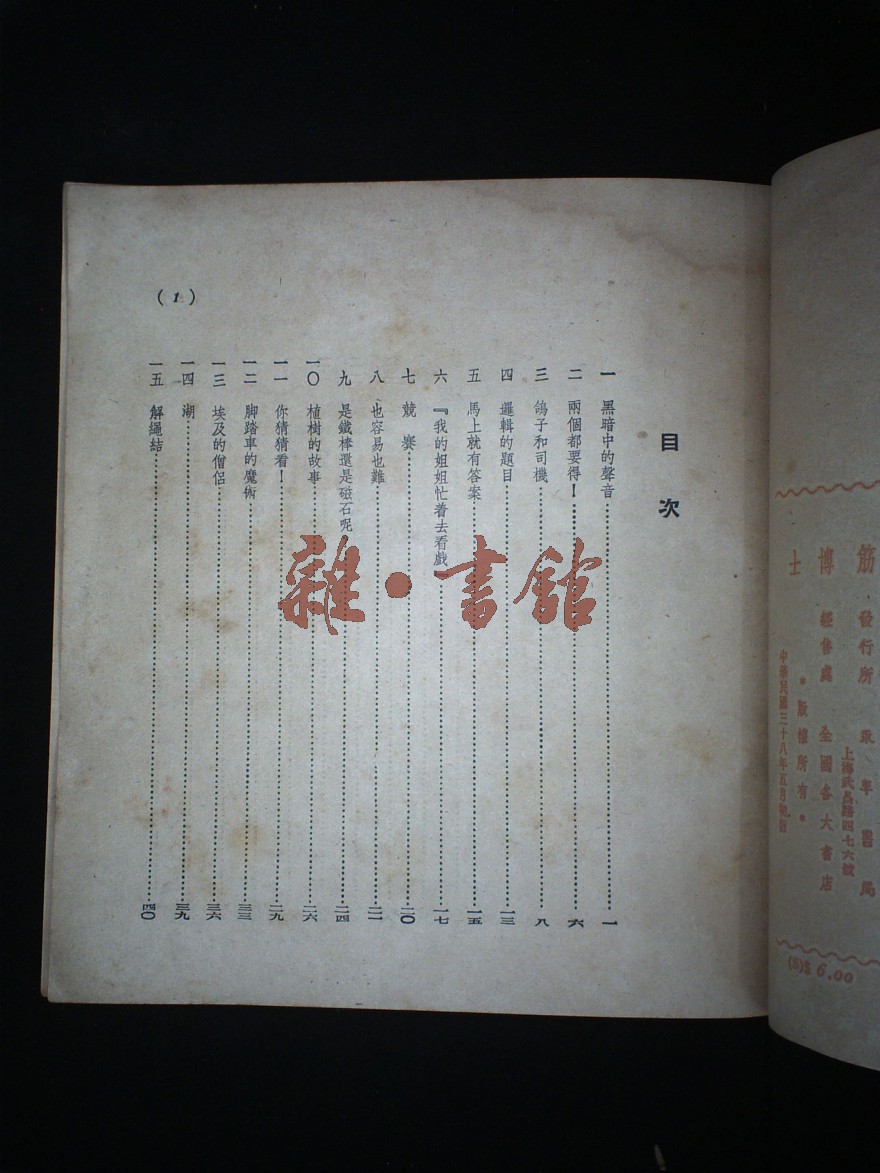 筋
博
士
發行所 
上海武昌路四七六號
經售處 全國各大書店
*版權所有*
中華民國三十八年五月初版
(S)$ 6.00
目次
一 黑暗中的聲音 一
二 兩個都要得! 六
三 鴿子和司機 八
四 邏輯的題目 一三
五 馬上就有答案 一五
六 『我的姐姐忙着去看戲』 一七
七 競賽 二〇
八 也容易也難 二二
九 是鐵棒還是磁石呢 二四
一〇 植樹的故事 二六
一一 你猜猜看! 二九
一二 脚踏車的魔術 三三
一三 埃及的僧侶 三六
一四 湖 三九
一五 解繩結 四〇
(1)
雜·書館